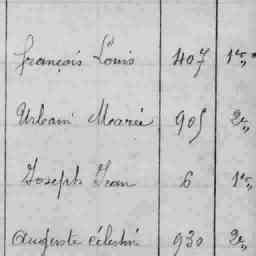 François Louis 407 1re
Urbain Marie 905 2e
Joseph Jean 6 1re
Auguste Célestin 930 2e